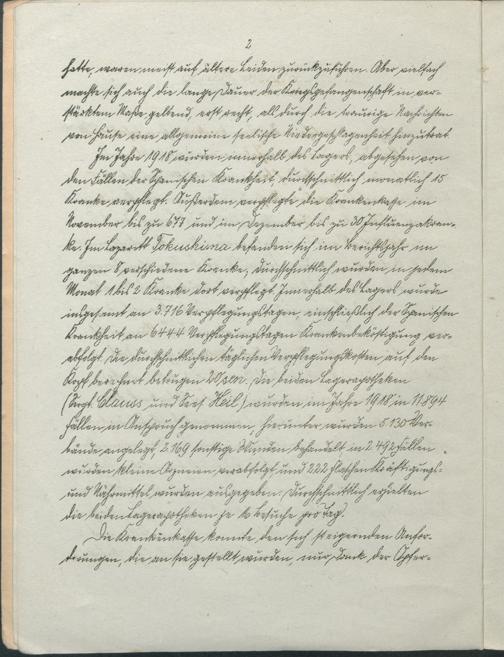 2
hatte, waren meist auf ältere Leiden zurückzuführen. Aber vielfach
machte sich auch die lange Dauer der Kriegsgefangenschaft in ver-
stärktem Maße geltend, erst recht, als durch die traurige Nachrichten
von Hause eine allgemeine seelische Niedergeschlagenheit hinzutrat.
Im Jahre 1918 wurden innerhalb des Lagers, abgesehen von
den Fällen der Spanischen Krankheit, durchschnittlich monatlich 15
Kranke verpflegt. Außerdem verpflegte die Krankenkasse im
November bis zu 677 und im Dezember bis zu 30 Influenzakran-
ke. Im Lazarett Tokushima befanden sich im Berichtsjahr im
ganzen 8 verschiedene Kranke, durchschnittlich wurden in jedem
Monat 1 bis 2 Kranke dort verpflegt. Innerhalb des Lagers wurde
insgesamt an 3.716 Verpflegungstagen, einschließlich der Spanischen
Krankheit an 6444 Verpflegungstagen Krankenbeköstigung ver-
abfolgt. Die durchschnittlichen täglichen Verpflegungskosten auf den
Kopf berechnet betrugen 20 sen. Die beiden Lagerapotheken
(Sergt. Clauss und Sees. Heil) wurden im Jahre 1918 in 11.894
Fällen in Anspruch genommen, hierunter wurden 5.130 Ver-
bände angelegt, 2.169 sonstige Wunden behandelt, in 2.492 Fällen
wurden kleine Arzneien verabfolgt, und 222 Flaschen Kräftigungs-
und Nährmittel wurden ausgegeben. Durchschnittlich erhielten
die beiden Lagerapotheken je 16 Besuche pro Tag.
Die Krankenkasse konnte den sich steigernden Anfor-
derungen, die an sie gestellt wurden, nur Dank der Opfer-